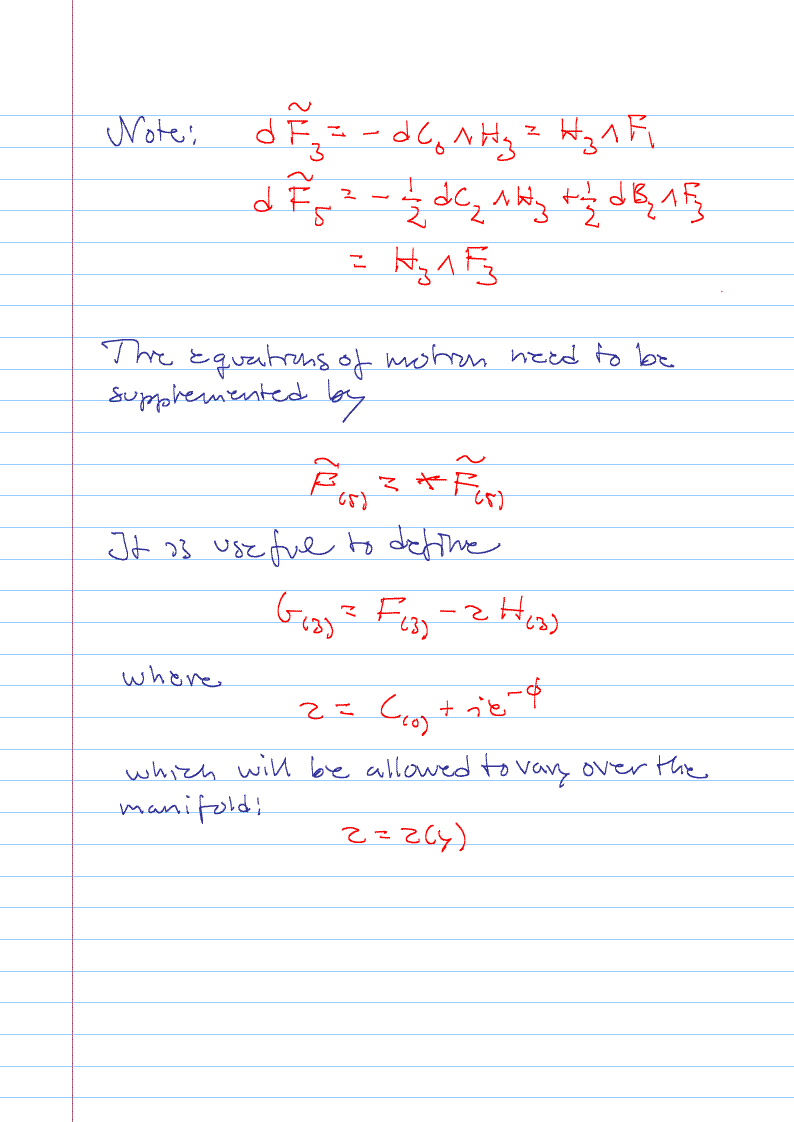 Note: d F̃₃ = - dC₀ ∧ H₃ = H₃ ∧ F₁
d F̃₅ = - 1/2 dC₂ ∧ H₃ + 1/2 dB₂ ∧ F₃
= H₃ ∧ F₃
The equations of motion need to be
supplemented by
F̃₍₅₎ = * F̃₍₅₎
It is useful to define
G₍₃₎ = F₍₃₎ - τ H₍₃₎
where
τ = C₍₀₎ + i e^{-ϕ}
which will be allowed to vary over the
manifold:
τ = τ(y)